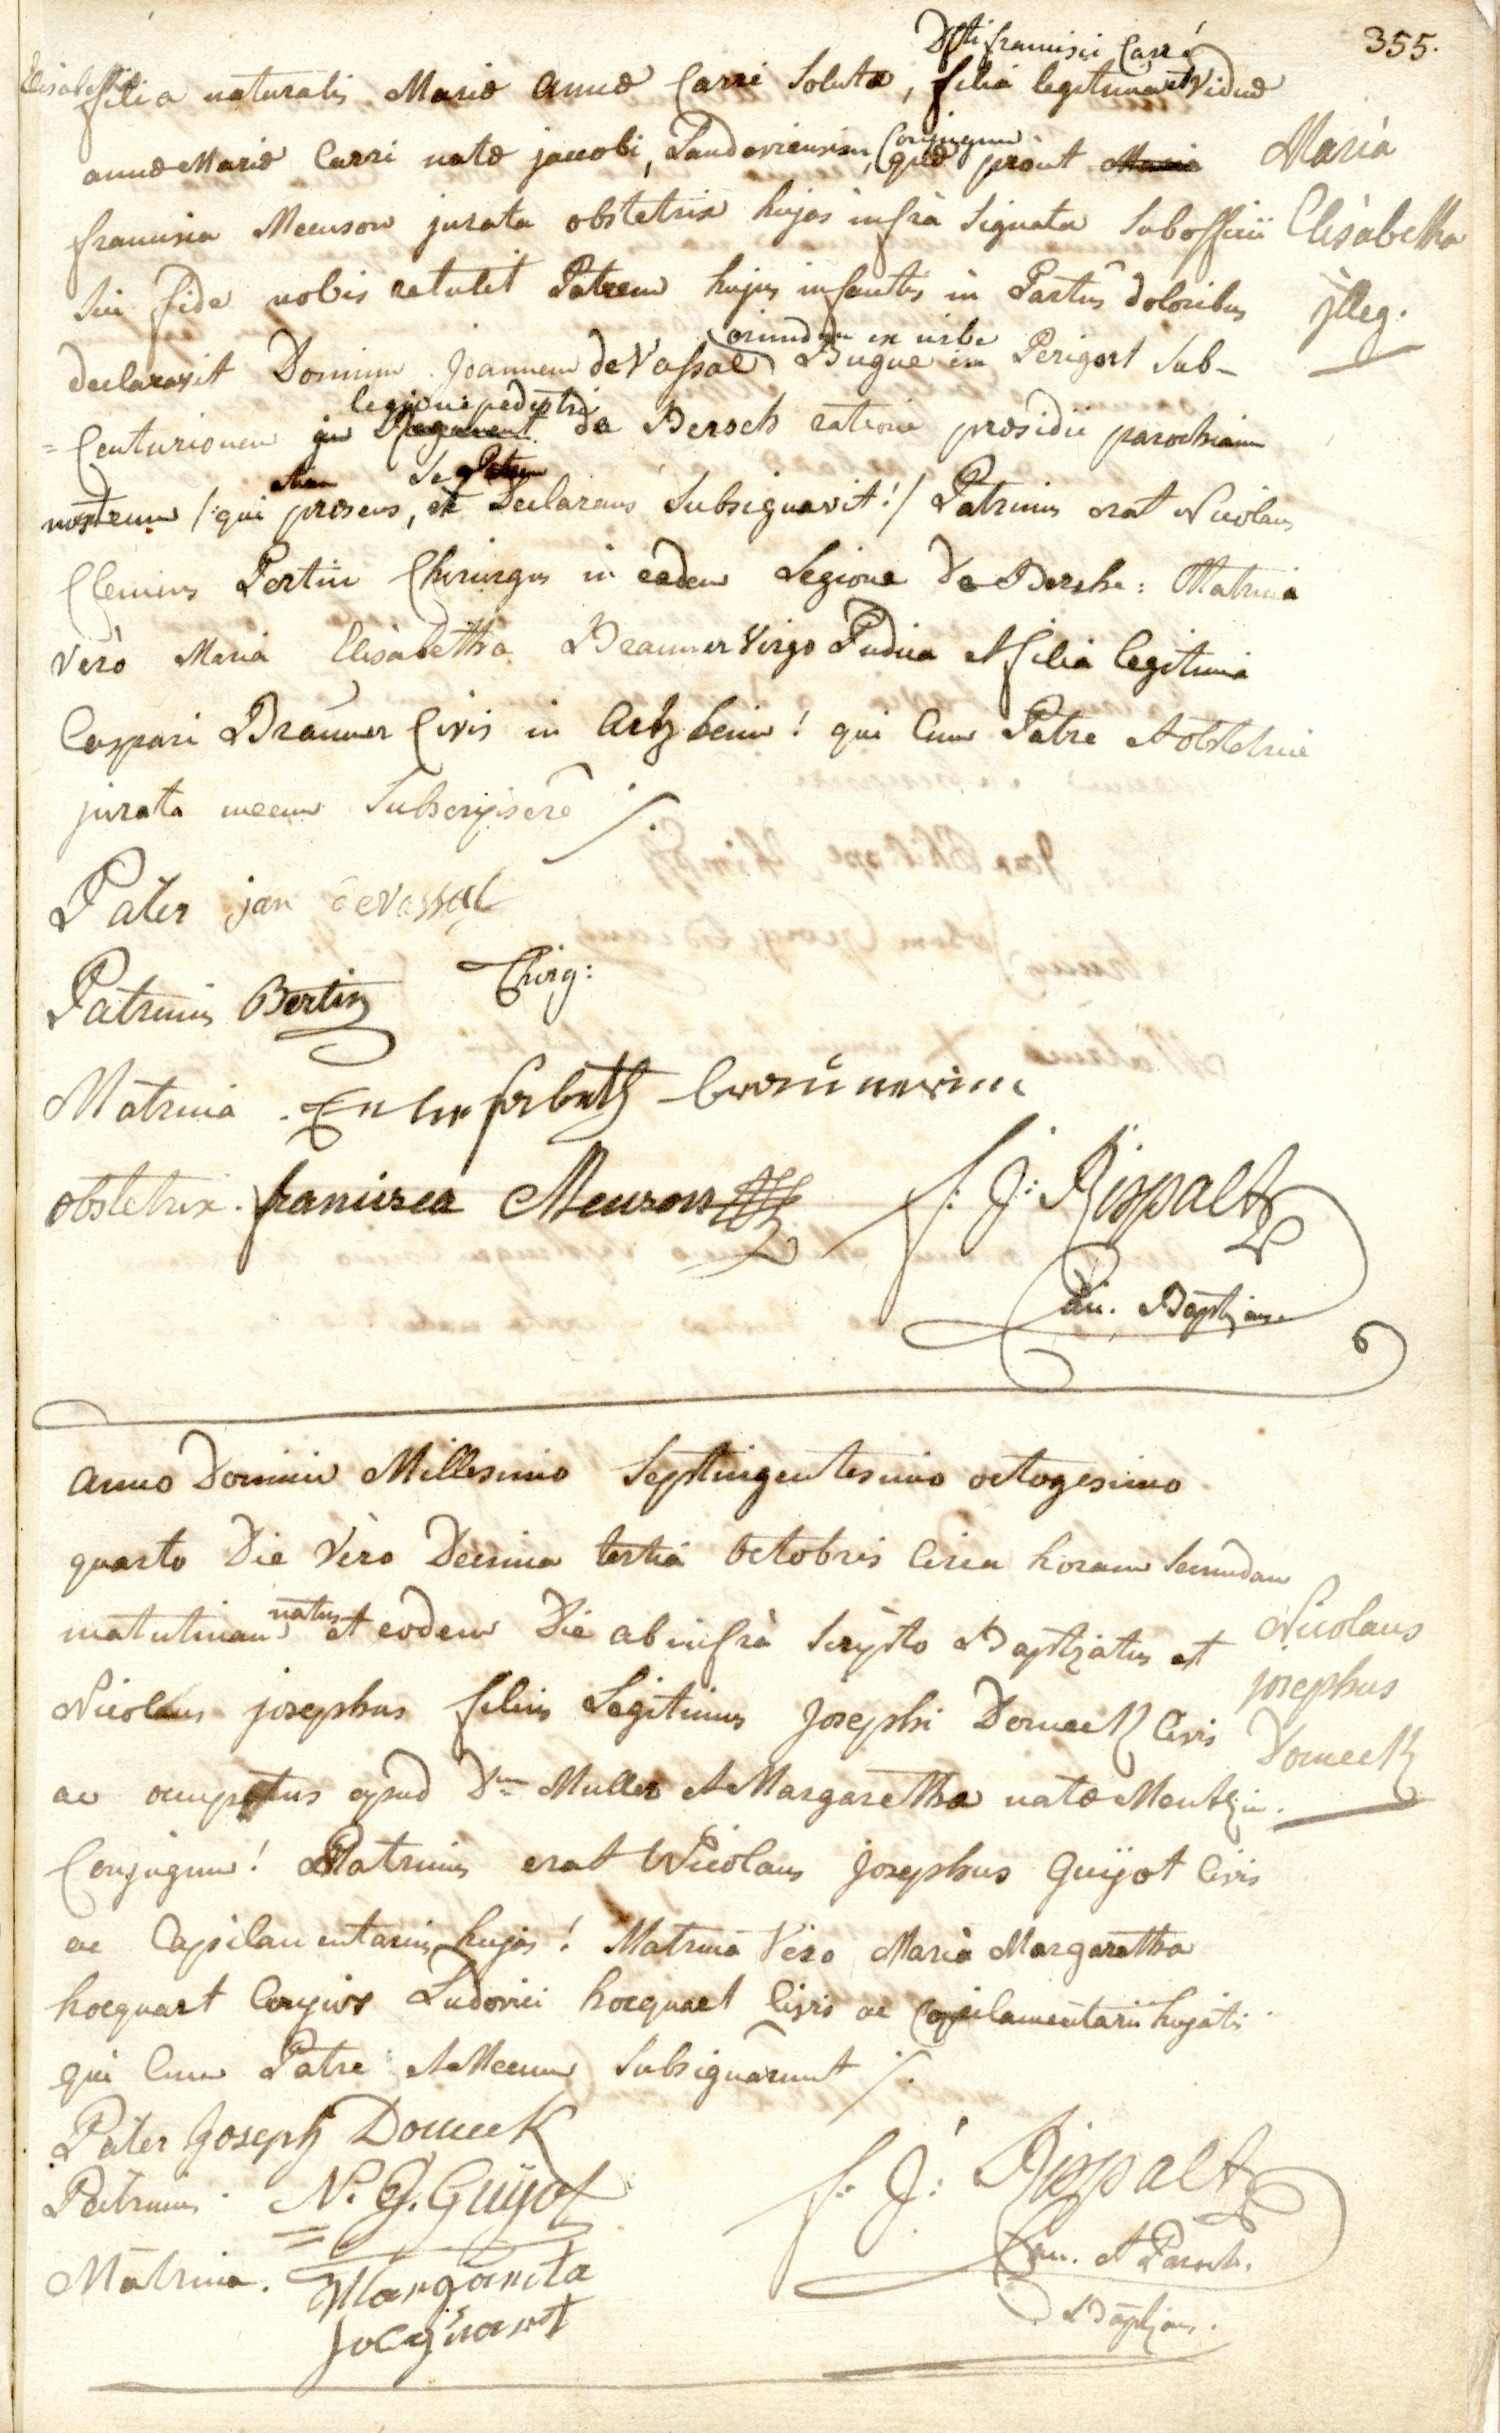 355.
Dfti francisci Carré
Elisabetha filia naturalis Mariæ Annæ Carré Solutæ, filiæ legitimæ et Viduæ
annæ Mariæ Carri natæ jacobi, Landaviensium, Conjugum quæ prout Maria
francisca Meuson jurata obstetrix hujas infrà Signata Sub officii
Sui fide nobis retulit Patrem hujus infantis in Partûs doloribus
declaravit Dominum Joannem de Vassal oriundum ex urbe Bugue in Perigort Sub-
= Centurionem in legione pedestri Regiment de Bersch ratione præsidii parochianum
nostrum /: qui etiam præsens, et Se Patrem Declarans Subsignavit :/ Patrinus erat Nicolaus
Clemens Pertin Chirurgus in eadem Legione De Bershe: Matrina
Verò Maria Elisabetha Braunner Virgo Pudica et filia legitima
Caspari Braunner Civis in Artzheim ! qui Cum Patre et obstetrice
jurata mecum Subscripsêre ./.
Maria
Elisabetha
jlleg.
Pater jan devassal
Patrinus Bertin Chirg:
Matrina . En lisabeth brounnerinn
obstetrix. francisca Meuson
f: J: Rispalt
Can. Baptizans.
Anno Domini Millesimo Septingentesimo octogesimo
quarto Die Vero Decima tertia octobris Circa horam Secundam
matutinam natus et eodem Die ab infrà Scripto Baptizatus et
Nicolaus josephus filius Legitimus Josephi Domeck Civis
ac occupatus apud Dnum Muller et Margaretha natæ Mentzin.
Conjugum ! Patrinus erat Nicolaus Josephus Guÿot Civis
ac Capilamentarius hujas ! Matrina Vero Maria Margaretha
hocquart Conjux Ludovici hocquart Civis ac Capilamentarii hujatis
qui Cum Patre et Mecum Subsignârunt ./.
Nicolaus
josephus
Domeck
Pater Joseph Domeck
Patrinus. N. J. Guÿot
Matrina. Margarita
hocquart
f: J: Rispalt
Can. et Paroch.
Baptizans.